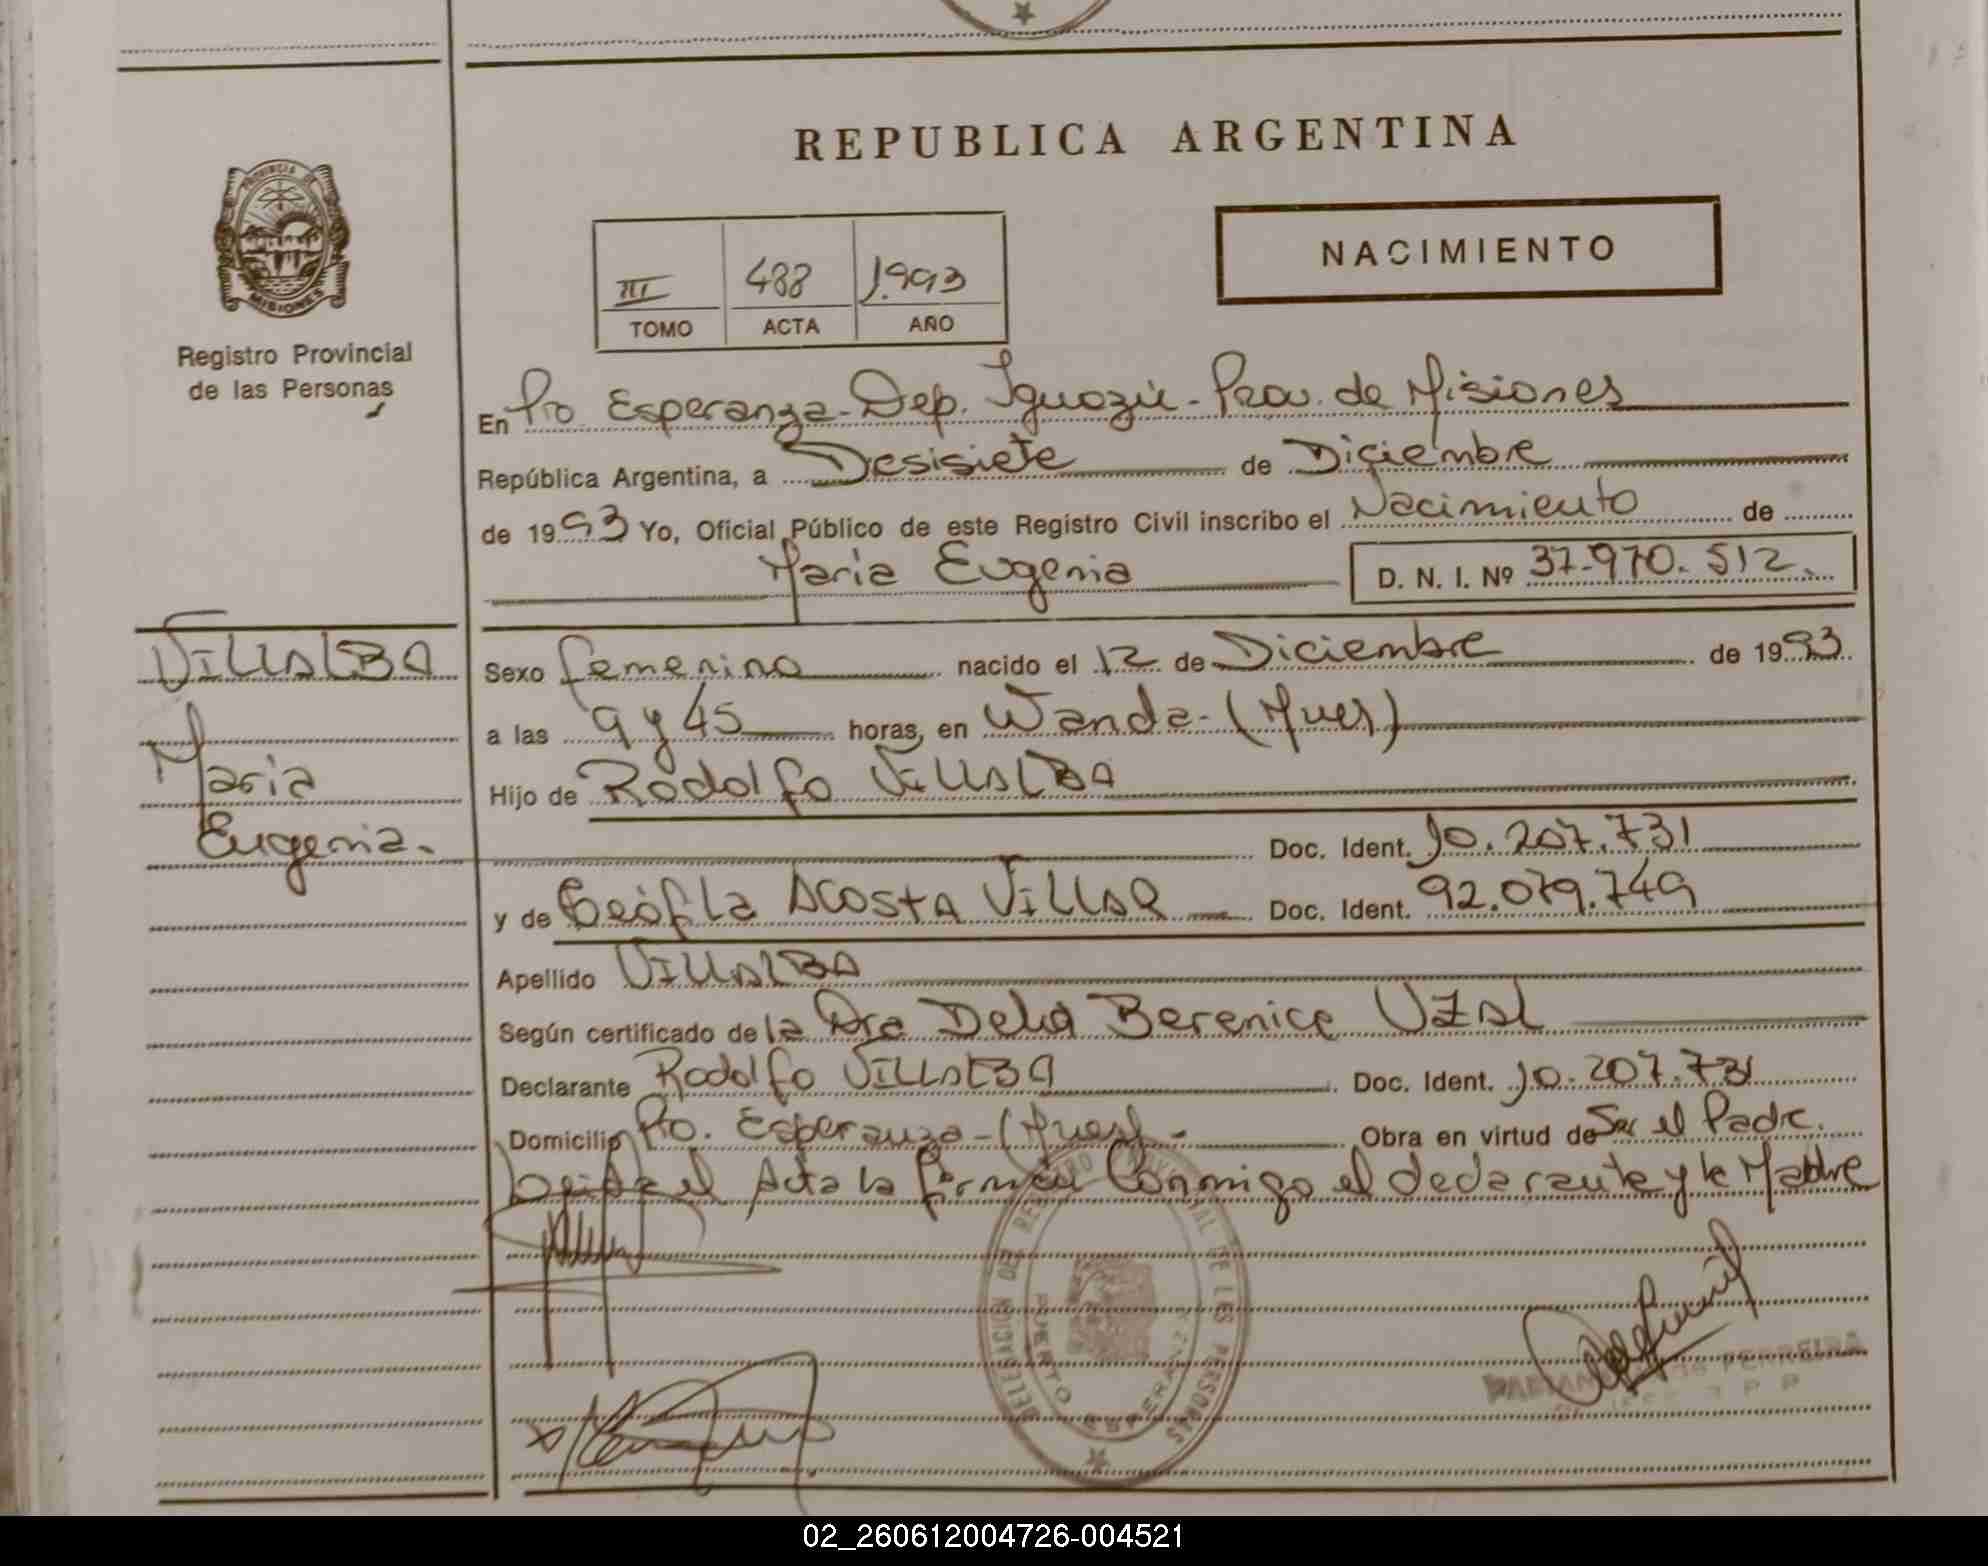 REPUBLICA ARGENTINA
PROVINCIA DE
MISIONES
Registro Provincial
de las Personas
NACIMIENTO
III 488 1.993
TOMO ACTA AÑO
En Pto Esperanza - Dep. Iguazú - Prov. de Misiones
República Argentina, a Desisiete de Diciembre
de 1993 Yo, Oficial Público de este Registro Civil inscribo el Nacimiento de
Maria Eugenia D. N. I. Nº 37.970.512.
VILLALBA
Maria
Eugenia.
Sexo femenino nacido el 12 de Diciembre de 1993
a las 9 y 45 horas, en Wanda - (Mnes)
Hijo de Rodolfo VILLALBA
Doc. Ident. 10.207.731
y de Teófila ACOSTA VILLAR Doc. Ident. 92.079.749
Apellido VILLALBA
Según certificado de la Dra Delia Berenice UZAL
Declarante Rodolfo VILLALBA Doc. Ident. 10.207.731
Domicilio Pto. Esperanza - (Mnes) - Obra en virtud de Ser el Padre.
Leida el Acta la firman Conmigo el declarante y la Madre
DELEGACION DEL REGISTRO PROVINCIAL DE LES PERSONAS
PUERTO ESPERANZA
FERREIRA
02_260612004726-004521